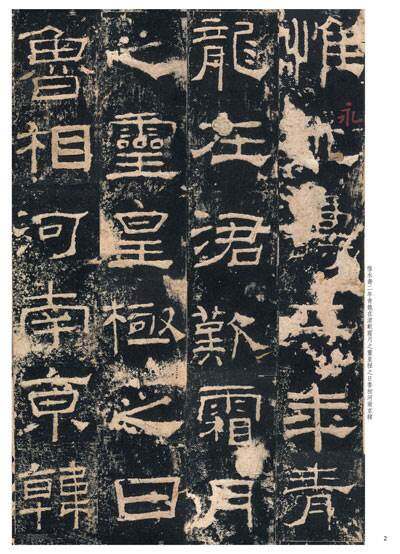 惟永壽二年青
龍在涒歎霜月
之靈皇極之日
魯相河南京韓
惟永壽二年青龍在涒歎霜月之靈皇極之日魯相河南京韓
2